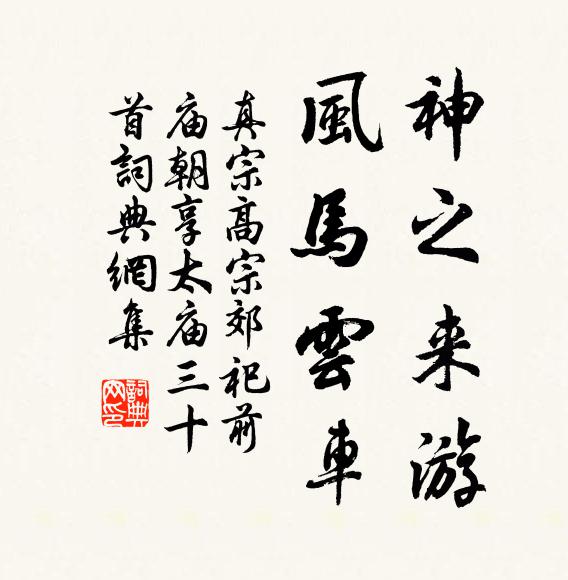 神之来游
風馬雲車
真宗高宗郊祀前
庙朝享太庙三十
首詞典網集
詞典网印